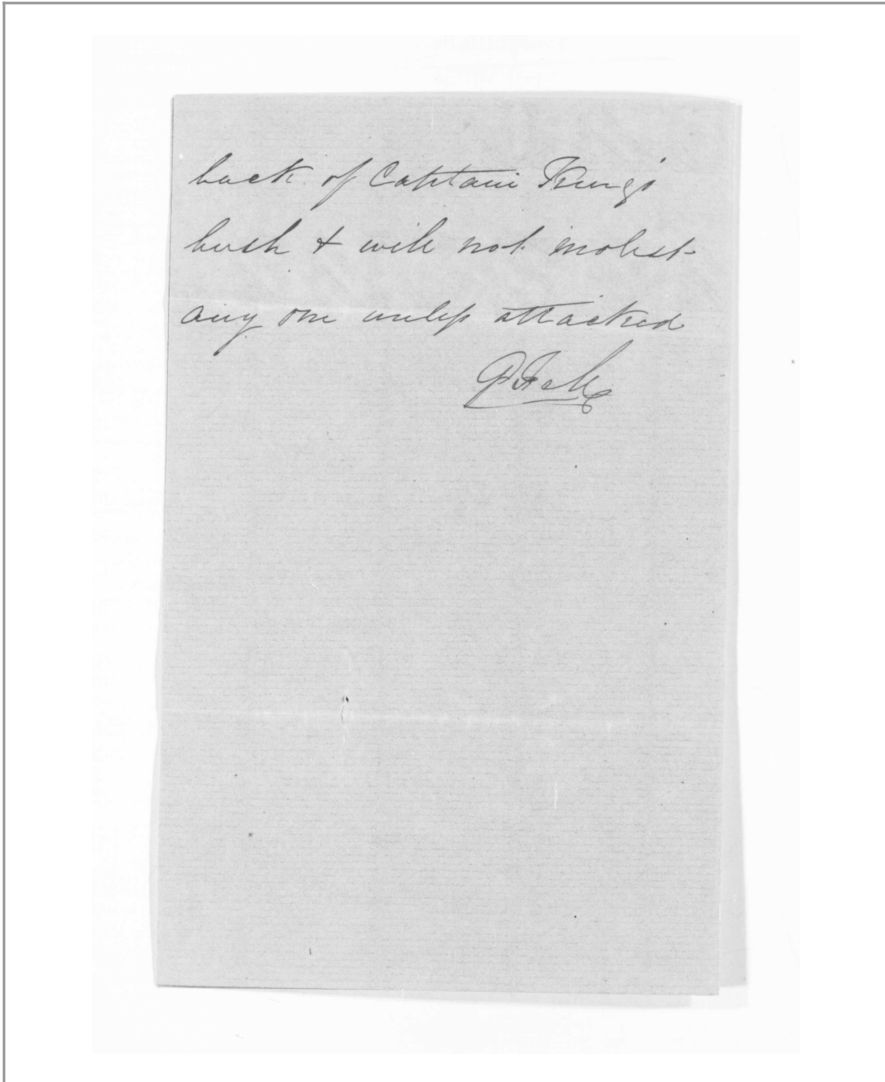 back of Captain King's
bush & will not molest
any one unless attacked